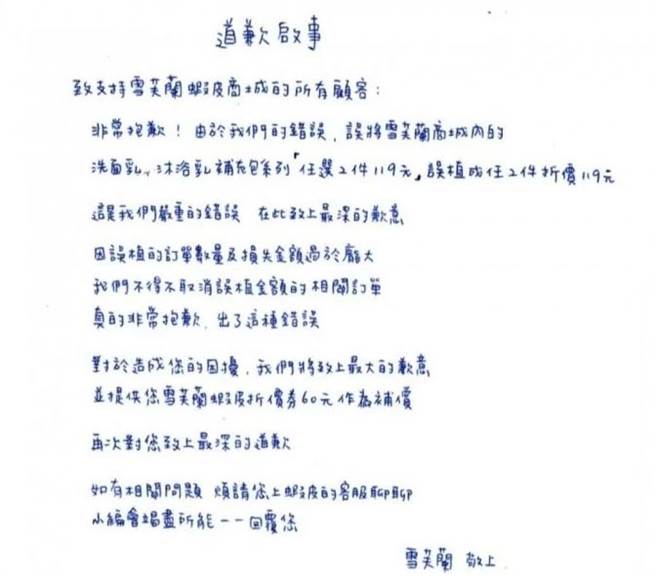 道歉啟事
致支持雪芙蘭蝦皮商城的所有顧客:
非常抱歉!由於我們的錯誤,誤將雪芙蘭商城內的
洗面乳、沐浴乳補充包系列「任選2件119元」誤植成任2件折價119元
這是我們嚴重的錯誤 在此致上最深的歉意
因誤植的訂單數量及損失金額過於龐大
我們不得不取消誤植金額的相關訂單
真的非常抱歉,出了這種錯誤
對於造成您的困擾,我們將致上最大的歉意
並提供您雪芙蘭蝦皮折價券60元作為補償
再次對您致上最深的道歉
如有相關問題 煩請您上蝦皮的客服聊聊
小編會竭盡所能一一回覆您
雪芙蘭 敬上